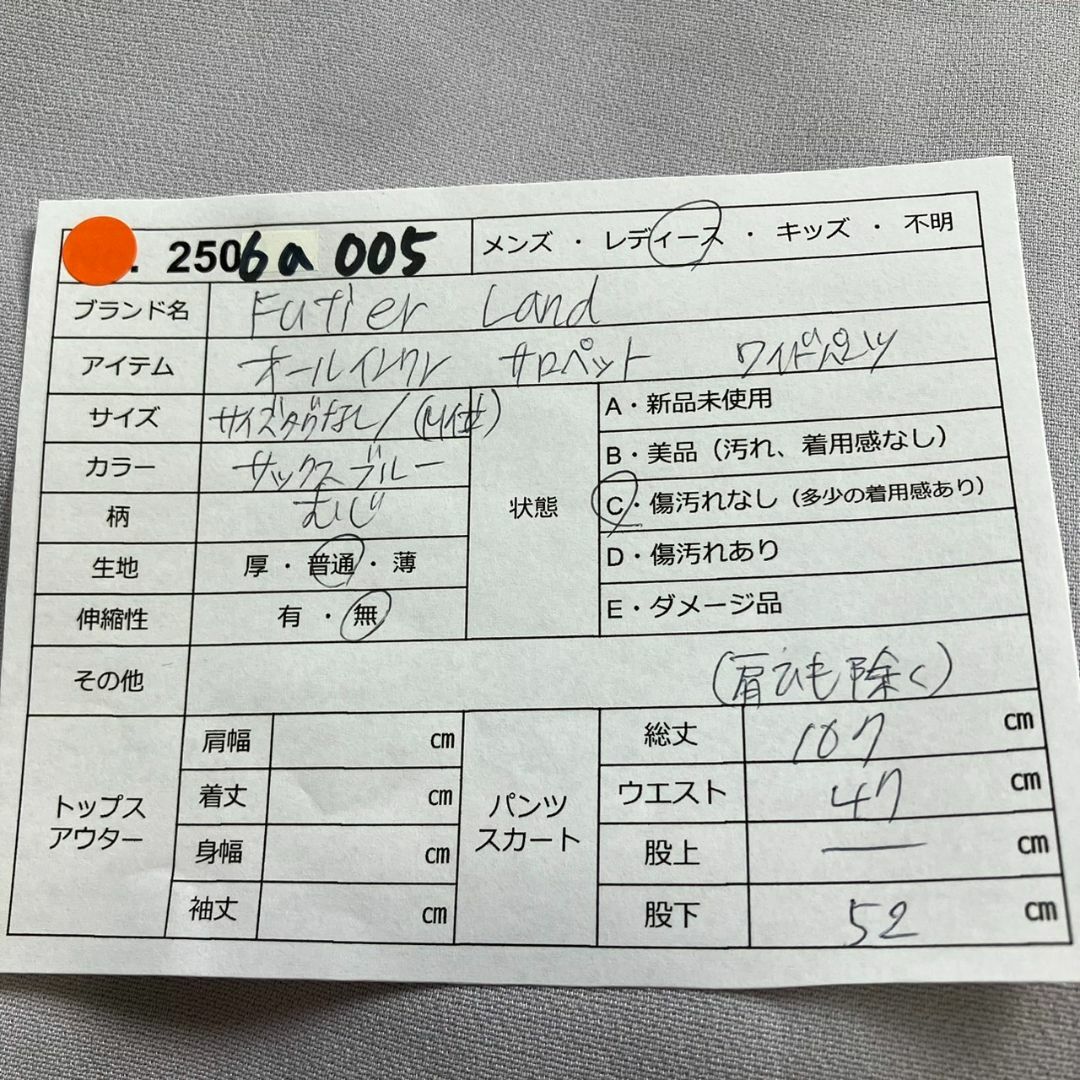 . 2506a005 メンズ ・ レディース ・ キッズ ・ 不明
ブランド名 Futier Land
アイテム オールインワン サロペット ワイドパンツ
サイズ サイズタグなし/(M位)
カラー サックスブルー
柄 むじ
生地 厚 ・ 普通 ・ 薄
伸縮性 有 ・ 無
状態
A・新品未使用
B・美品（汚れ、着用感なし）
C・傷汚れなし（多少の着用感あり）
D・傷汚れあり
E・ダメージ品
その他 (肩ひも除く)
トップス
アウター
肩幅 cm
着丈 cm
身幅 cm
袖丈 cm
パンツ
スカート
総丈 107 cm
ウエスト 47 cm
股上 ー cm
股下 52 cm